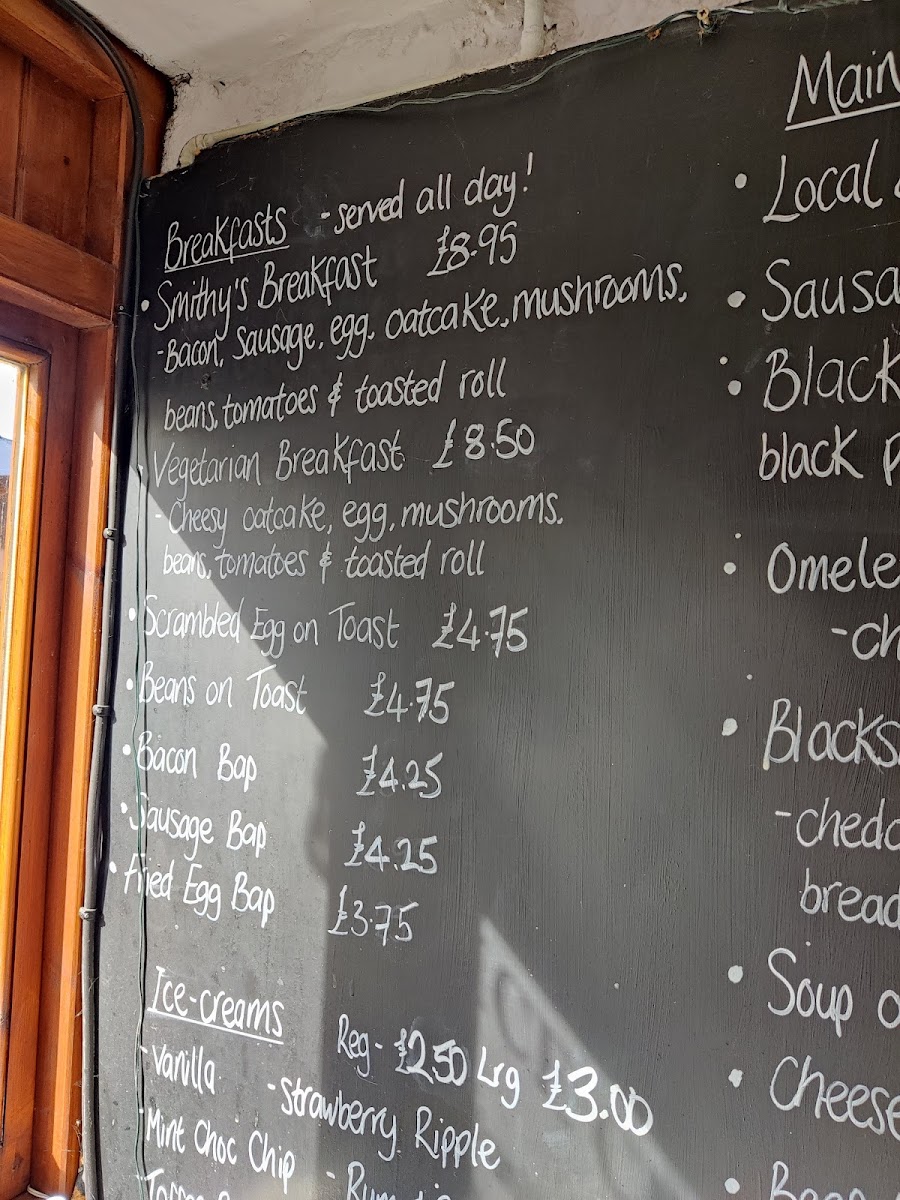 Breakfasts - served all day!
• Smithy's Breakfast £8.95
- Bacon, Sausage, egg, oatcake, mushrooms,
beans, tomatoes & toasted roll
• Vegetarian Breakfast £8.50
- Cheesy oatcake, egg, mushrooms,
beans, tomatoes & toasted roll
• Scrambled Egg on Toast £4.75
• Beans on Toast £4.75
• Bacon Bap £4.25
• Sausage Bap £4.25
• Fried Egg Bap £3.75
Ice-creams
Reg - £2.50 Lrg £3.00
- Vanilla - Strawberry Ripple
- Mint Choc Chip - Rum
Main
• Local
• Sausa
• Black
black p
• Omele
- ch
• Blacks
- chedd
bread
• Soup o
• Cheese